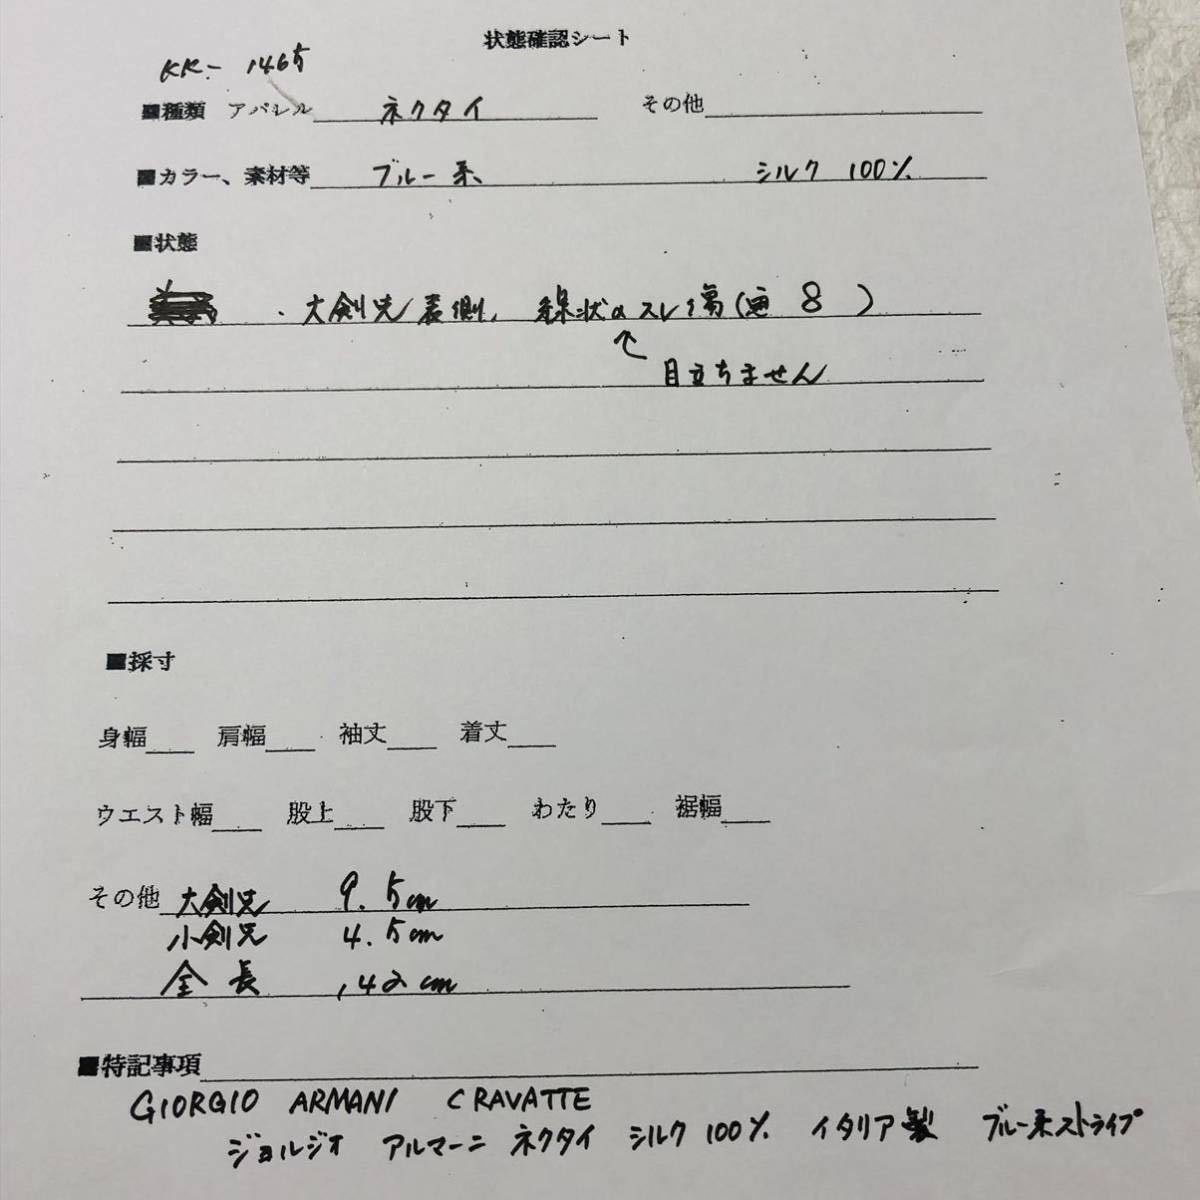 状態確認シート
KR- 1465
■種類 アパレル ネクタイ その他
■カラー、素材等 ブルー系 シルク 100%
■状態
・大剣先表側、線状のスレ傷(画 8 )
↑
目立ちません
■採寸
身幅 肩幅 袖丈 着丈
ウエスト幅 股上 股下 わたり 裾幅
その他 大剣先 9.5cm
小剣先 4.5cm
全長 142cm
■特記事項
GIORGIO ARMANI CRAVATTE
ジョルジオ アルマーニ ネクタイ シルク100% イタリア製 ブルー系ストライプ